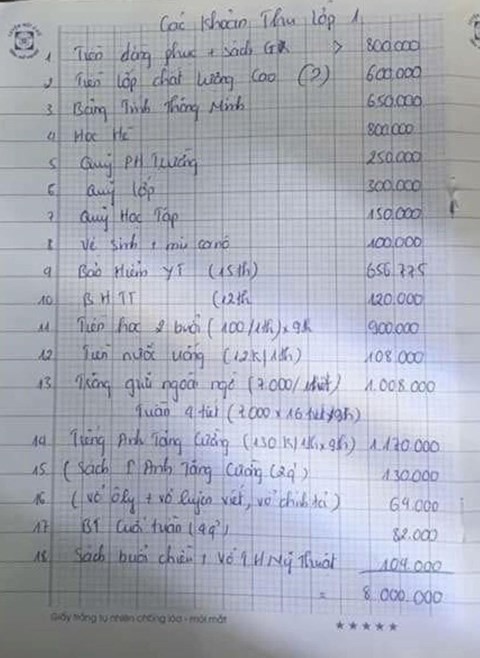 Các Khoản Thu Lớp 1.
1 Tiền đồng phục + sách GK > 800.000
2 Tiền lớp chất lượng cao (?) 600.000
3 Bảng Tính Thông Minh 650.000
4 Học Hè 800.000
5 Quỹ PH Trường 250.000
6 Quỹ lớp 300.000
7 Quỹ Học Tập 150.000
8 Vệ sinh + mũ ca nô 100.000
9 Bảo Hiểm YT (15th) 656.775
10 BHTT (12th 120.000
11 Tiền học 2 buổi (100/1th) x 9th 900.000
12 Tiền nước uống (12K/1th) 108.000
13 Trông giữ ngoài ngờ (7.000/1tiết) 1.008.000
Tuần 4 tiết (7.000 x 16 tiết/9th)
14 Tiếng Anh Tăng Cường (130K/1th x 9th) 1.170.000
15 (Sách T Anh Tăng Cường (2q) 130.000
16 (vở ôly + vở luyện viết, vở chính tả) 69.000
17 BT Cuối tuần (4q) 82.000
18 Sách buổi chiều + Vở TH Mỹ Thuật 104.000
= 8.000.000
Giấy trắng tự nhiên chống lóa - mỏi mắt